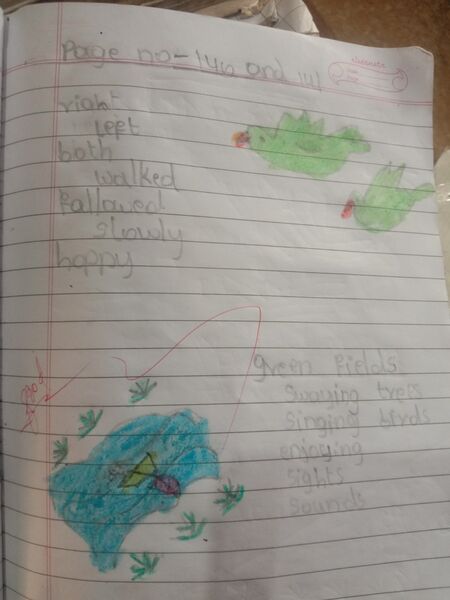 Page no - 146 and 141
right
left
both
walked
fallowed
slowly
happy
green fields
swaying trees
singing birds
enjoying
sights
sounds